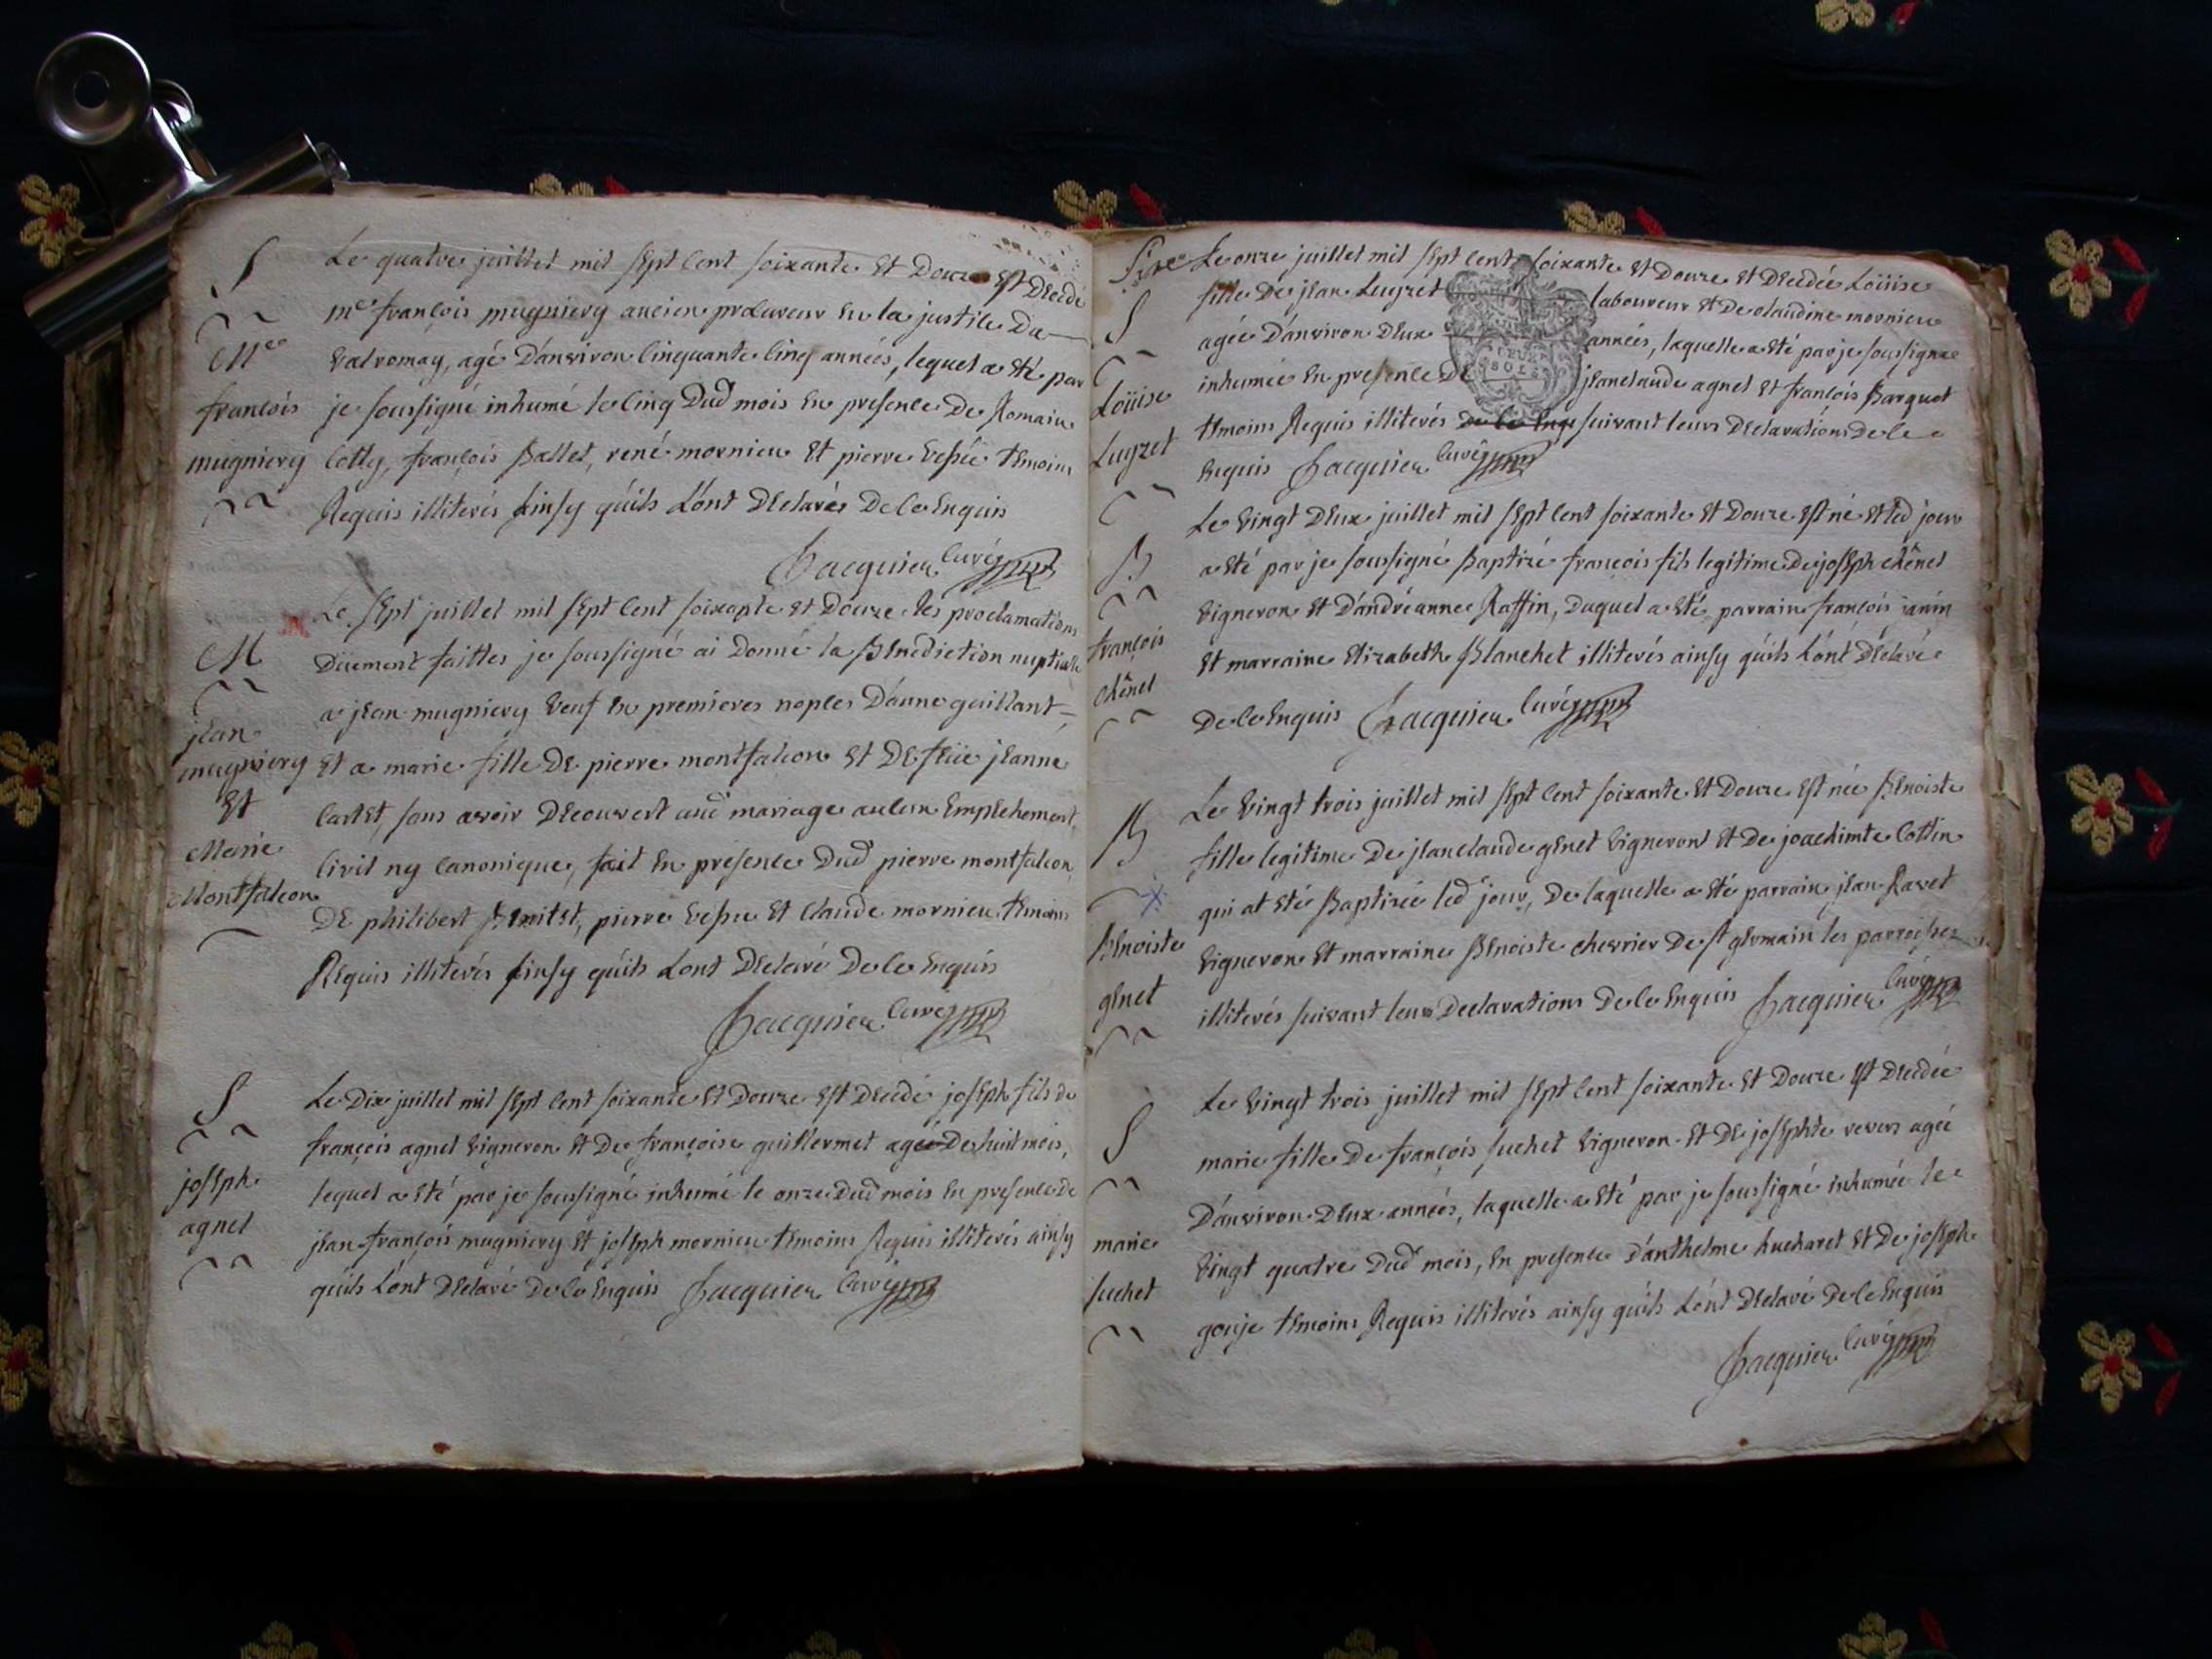 S
Me
françois
mugniery
Le quatre juillet mil sept cent soixante et douze est decedé
me françois mugniery ancien procureur en la justice du
valromay, agé d'anviron cinquante cinq années, lequel a eté par
je soussigné inhumé le cinq dud mois en presence de Romain
Cotty, françois Ballet, rené mornieu et pierre temoins
Requis illiterés ainsy qu'ils l'ont declarés de ce enquis
Jacquier curé
M
jean
mugniery
et
Marie
Montfalcon
Le sept juillet mil sept cent soixante et douze les proclamations
düement faittes je soussigné ai donné la Benediction nuptiale
a jean mugniery veuf en premieres nopces d'anne guillant
et a marie fille de pierre montfalcon et de feüe jeanne
cartet, sans avoir decouvert aud mariage aucun empechement
civil ny canonique, fait en presence dud pierre montfalcon
de philibert pierre et claude mornieu temoins
Requis illiterés ainsy qu'ils l'ont declaré de ce enquis
Jacquier curé
S
joseph
agnel
Le dix juillet mil sept cent soixante et douze est decedé joseph fils de
françois agnel vigneron et de françoise guillermet agé de huit mois,
lequel a eté par je soussigné inhumé le onze dud mois en presence de
jean françois mugniery et joseph mornieu temoins Requis illiterés ainsy
qu'ils l'ont declaré de ce enquis Jacquier curé
S
Loüise
Luyzet
Le onze juillet mil sept cent soixante et douze et decedée Loüise
fille de jean Luyzet laboureur et de claudine mornieu
agée d'anviron deux années, laquelle a eté par je soussigné
inhumée en presence de jeanclaude agnel et françois Barquet
temoins Requis illiterés de ce enq suivant leurs declarations de ce
enquis Jacquier curé
B
françois
chênel
Le vingt deux juillet mil sept cent soixante et douze est né et led jour
a eté par je soussigné Baptizé françois fils legitime de joseph chênel
vigneron et d'andréanne Raffin, duquel a eté parrain françois janin
et marraine Elizabeth Blanchet illiterés ainsy qu'ils l'ont déclaré
de ce enquis Jacquier curé
B
Benoiste
genet
Le vingt trois juillet mil sept cent soixante et douze est née Benoiste
fille legitime de jeanclaude genet vigneron et de joachimte Cottin
qui at eté Baptizée led jour, de laquelle a eté parrain jean Ravet
vigneron et marraine Benoiste chevrier de st germain les parroisses
illiterés suivant leurs declarations de ce enquis Jacquier curé
S
marie
suchet
Le vingt trois juillet mil sept cent soixante et douze est decedée
marie fille de françois suchet vigneron et de josephte revers agée
d'anviron deux années, laquelle a eté par je soussigné inhumée le
vingt quatre dud mois, en presence d'anthelme hucharet et de joseph
gouje temoins Requis illiterés ainsy qu'ils l'ont declaré de ce enquis
Jacquier curé